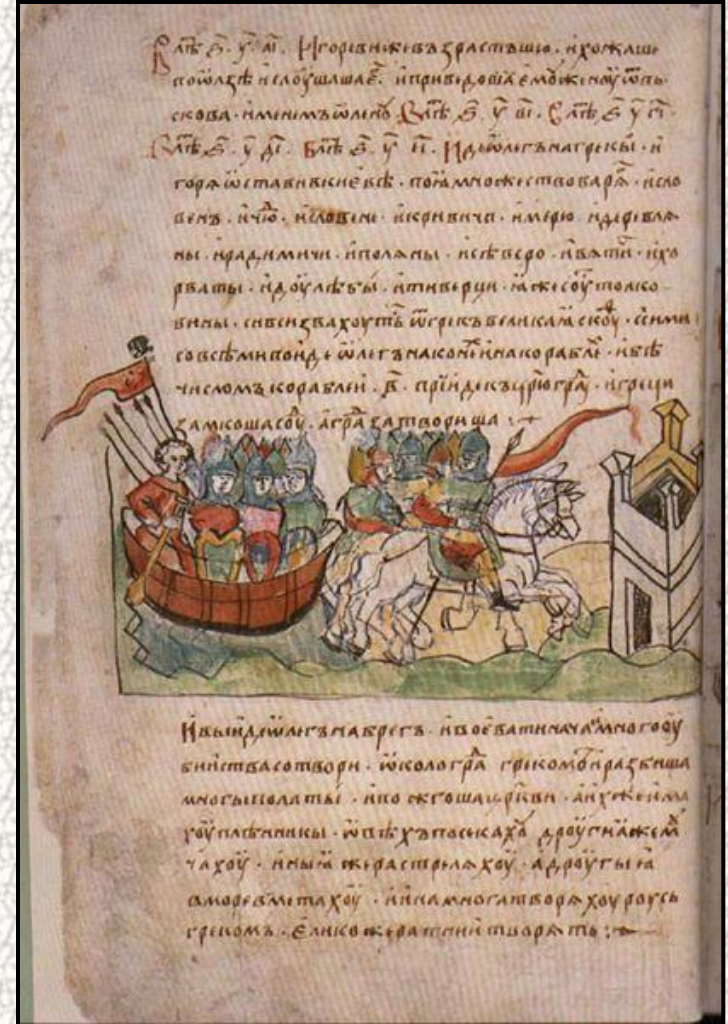 в лѣⷮ ҂ѕ҃ у҃ аі҃. Игореви же възрастъшю. и хожаше
по ѿлзѣ и слоушаша еⷢ҇. и приведоша емоу женоу ѿ пь
скова. именемъ ѿленоу в лѣⷮ ҂ѕ҃ у҃ ві҃. в лѣⷮ ҂ѕ҃ у҃ гі҃.
в лѣⷮ ҂ѕ҃ у҃ ді҃. в лѣⷮ ҂ѕ҃ у҃ еі҃. Иде ѿлегъ на грекы. и
горя ѡстави в киевѣ. поꙗ множество варяⷢ. и сло
венъ. и чюⷣ. и словене. и кривичи. и мерю. и деревлѧ
ны. и радимичи. и поляны. и сѣверо. и вятичи. и хо
рваты. и доулѣбы. и тиверци. ꙗже соуⷮ толко
вины. си вси звахоутьⷭ ѿ грекъ великаꙗ скоуⷴ. с сими
со всѣми поиде ѿлегъ на конеⷯ и на кораблеⷯ. и бѣ
числомъ кораблеи. ҂в҃. прїиде къ цр҃югра. и греци
замкоша соуⷣ. а граⷣ затвориша
И выиде ѿлегъ на брегъ. и воевати нача. и много оу
биства сотвори. ѡколо граⷣ грекомъ. и разбиша
многы полаты. и пожгоша цр҃кви. а ихже има
хоу плѣнникы. ѡвѣхъ посѣкахоу дроугиꙗ же моу
чахоу. иныꙗ же растрелѧхоу. а дроугыꙗ
в море вметахоу. и ина многа творѧхоу роусь
грекомъ. елико же ратнии творѧть